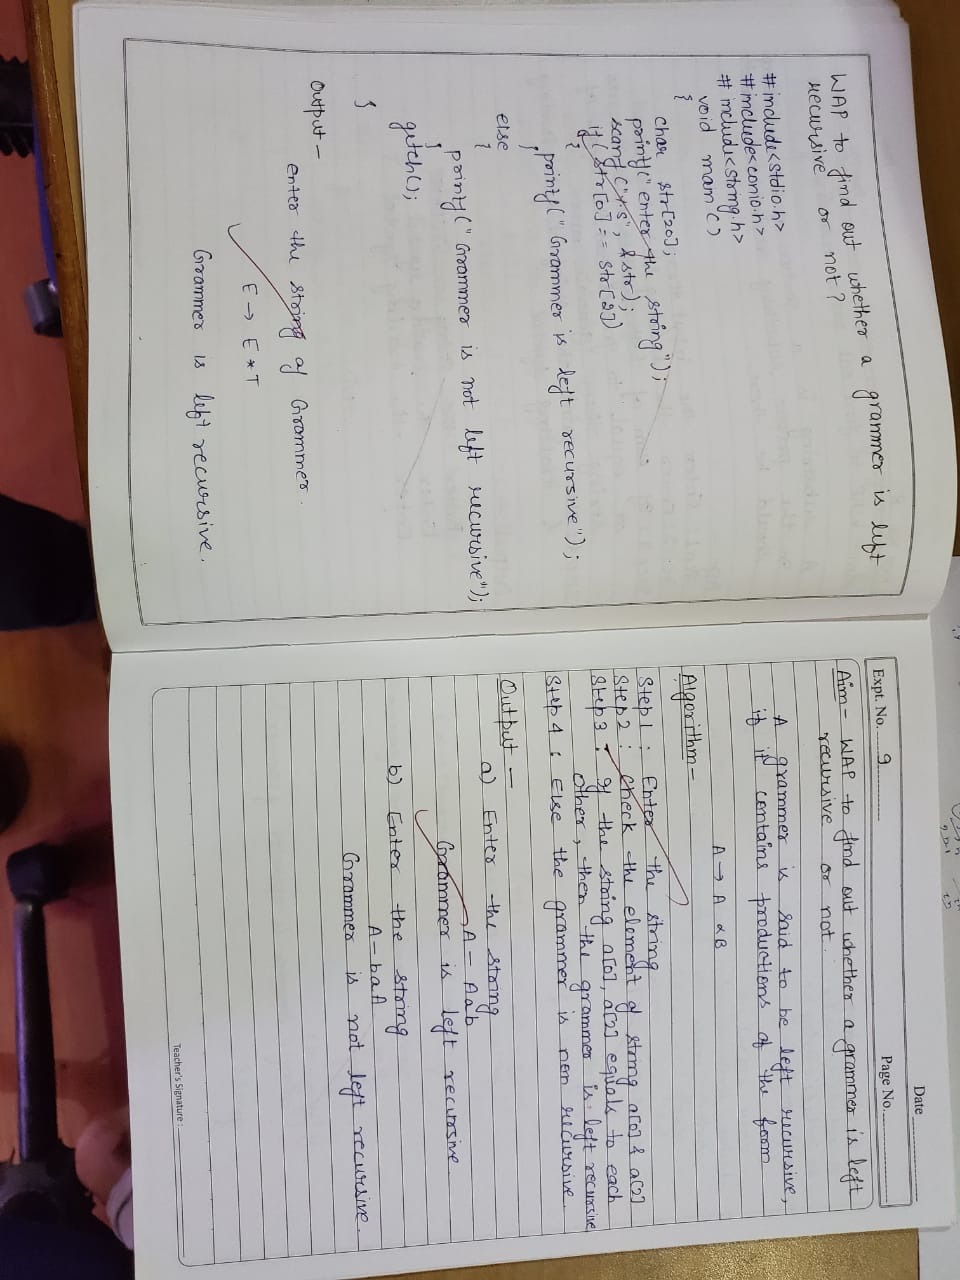 WAP to find out whether a grammer is left
recursive or not?
#include<stdio.h>
#include<conio.h>
#include<string.h>
void main()
{
char str[20];
printf("enter the string");
scanf("%s", &str);
if(str[0]==str[2])
{
printf("Grammer is left recursive");
}
else
{
printf("Grammer is not left recursive");
}
getch();
}
Output -
enter the string of Grammer.
E → E*T
Grammer is left recursive.
Date
Expt. No. 9
Page No.
Aim - WAP to find out whether a grammer is left
recursive or not.
A grammer is said to be left recursive,
if it contains productions of the form
A → A α B
Algorithm -
Step 1 : Enter the string
Step 2 : Check the element of string a[0] & a[2]
Step 3 : If the string a[0], a[2] equals to each
other, then the grammer is left recursive
Step 4 : Else the grammer is non recursive.
Output -
a) Enter the string
A - Aab
Grammer is left recursive
b) Enter the string
A - baA
Grammer is not left recursive.
Teacher's Signature :